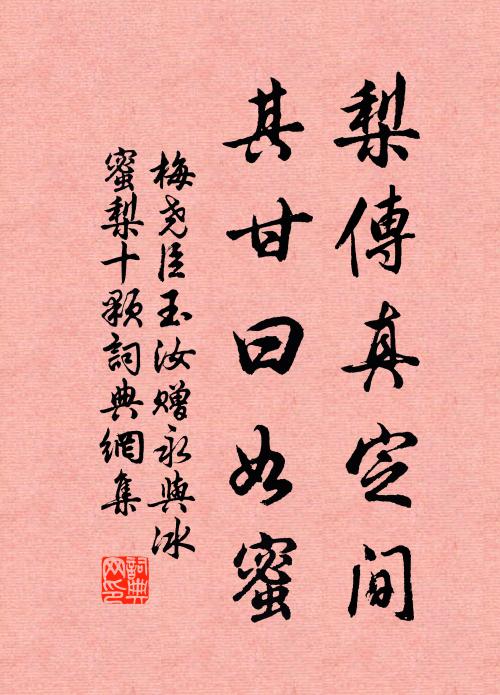 梨傳真定間
其甘曰如蜜
梅堯臣玉汝贈永興冰
蜜梨十顆詞典網集
詞典网印